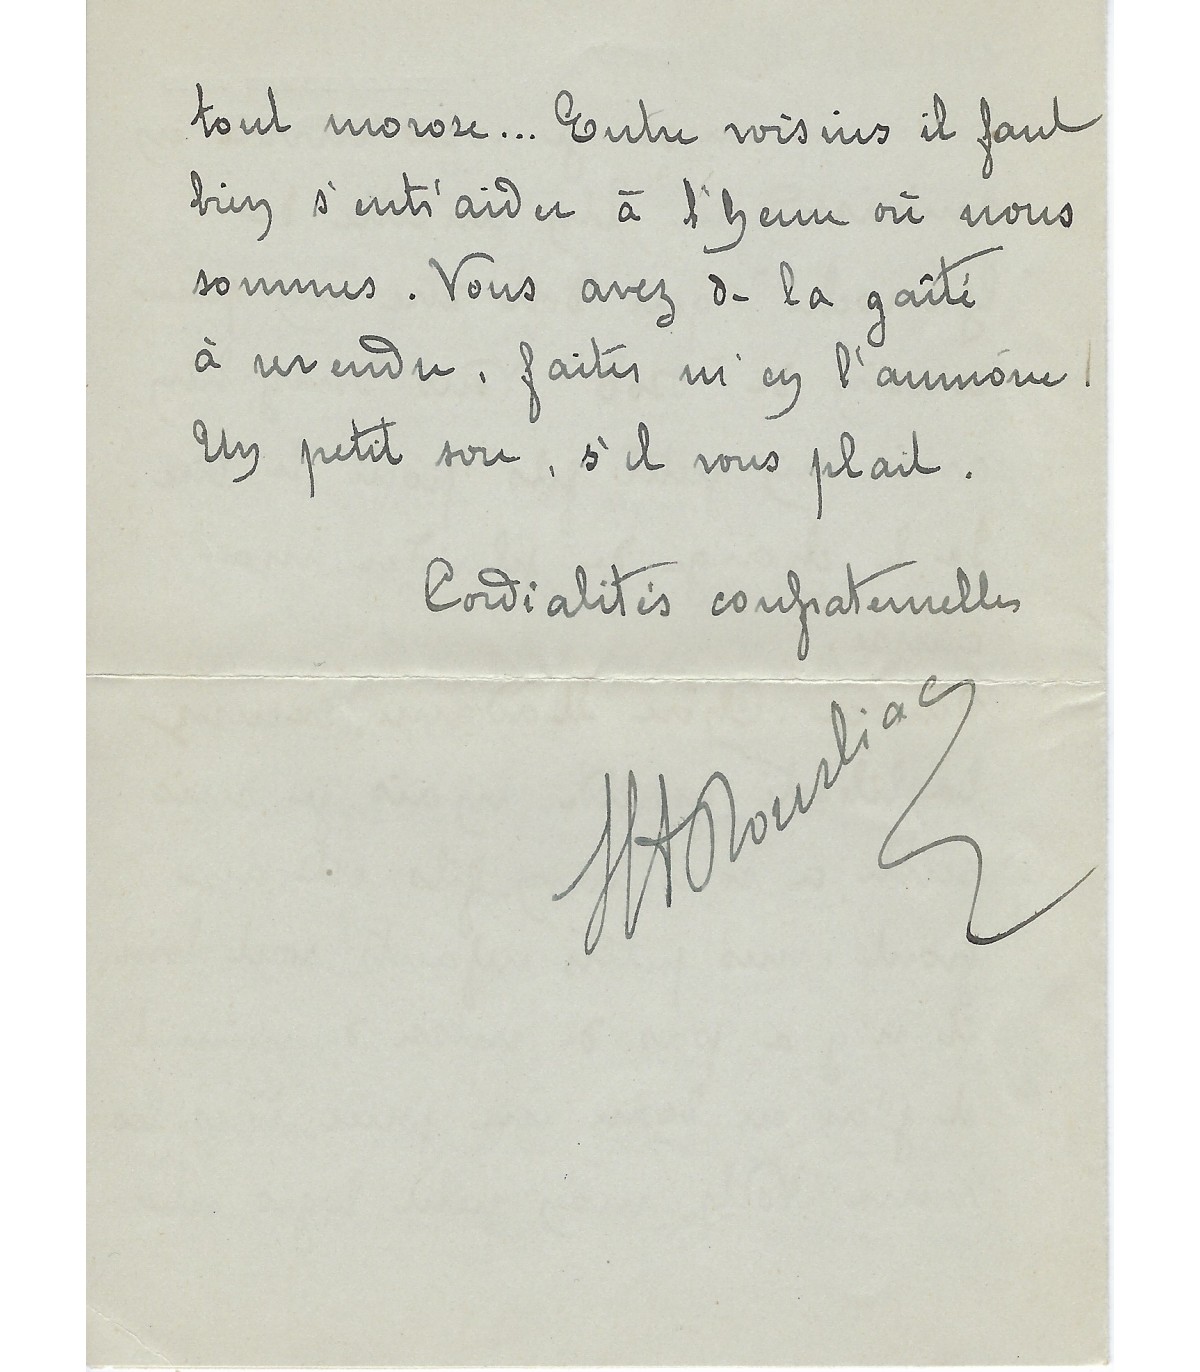 tout morose... Entre voisins il faut
bien s'entr'aider à l'heure où nous
sommes. Vous avez de la gaîté
à revendre, faites m'en l'aumône !
Un petit sou, s'il vous plait.
Cordialités confraternelles
JHA Rourliac